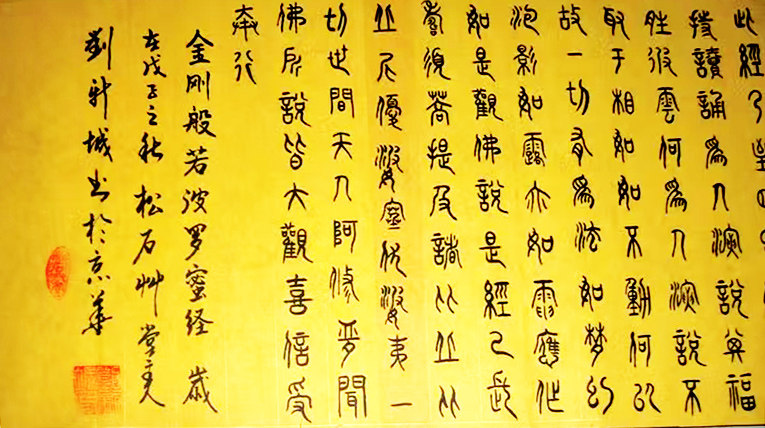 此經乃至四
持讀誦爲人演說其福
胜彼雲何爲人演說不
取于相如如不動何以
故一切有爲法如梦幻
泡影如露亦如電應作
如是觀佛說是經已長
耆須菩提及諸比丘比
丘尼優婆塞優婆夷一
切世間天人阿修羅聞
佛所說皆大觀喜信受
奉行
金剛般若波罗蜜経 歲
在戊子之秋松石艸堂主人
劉新城书於京華